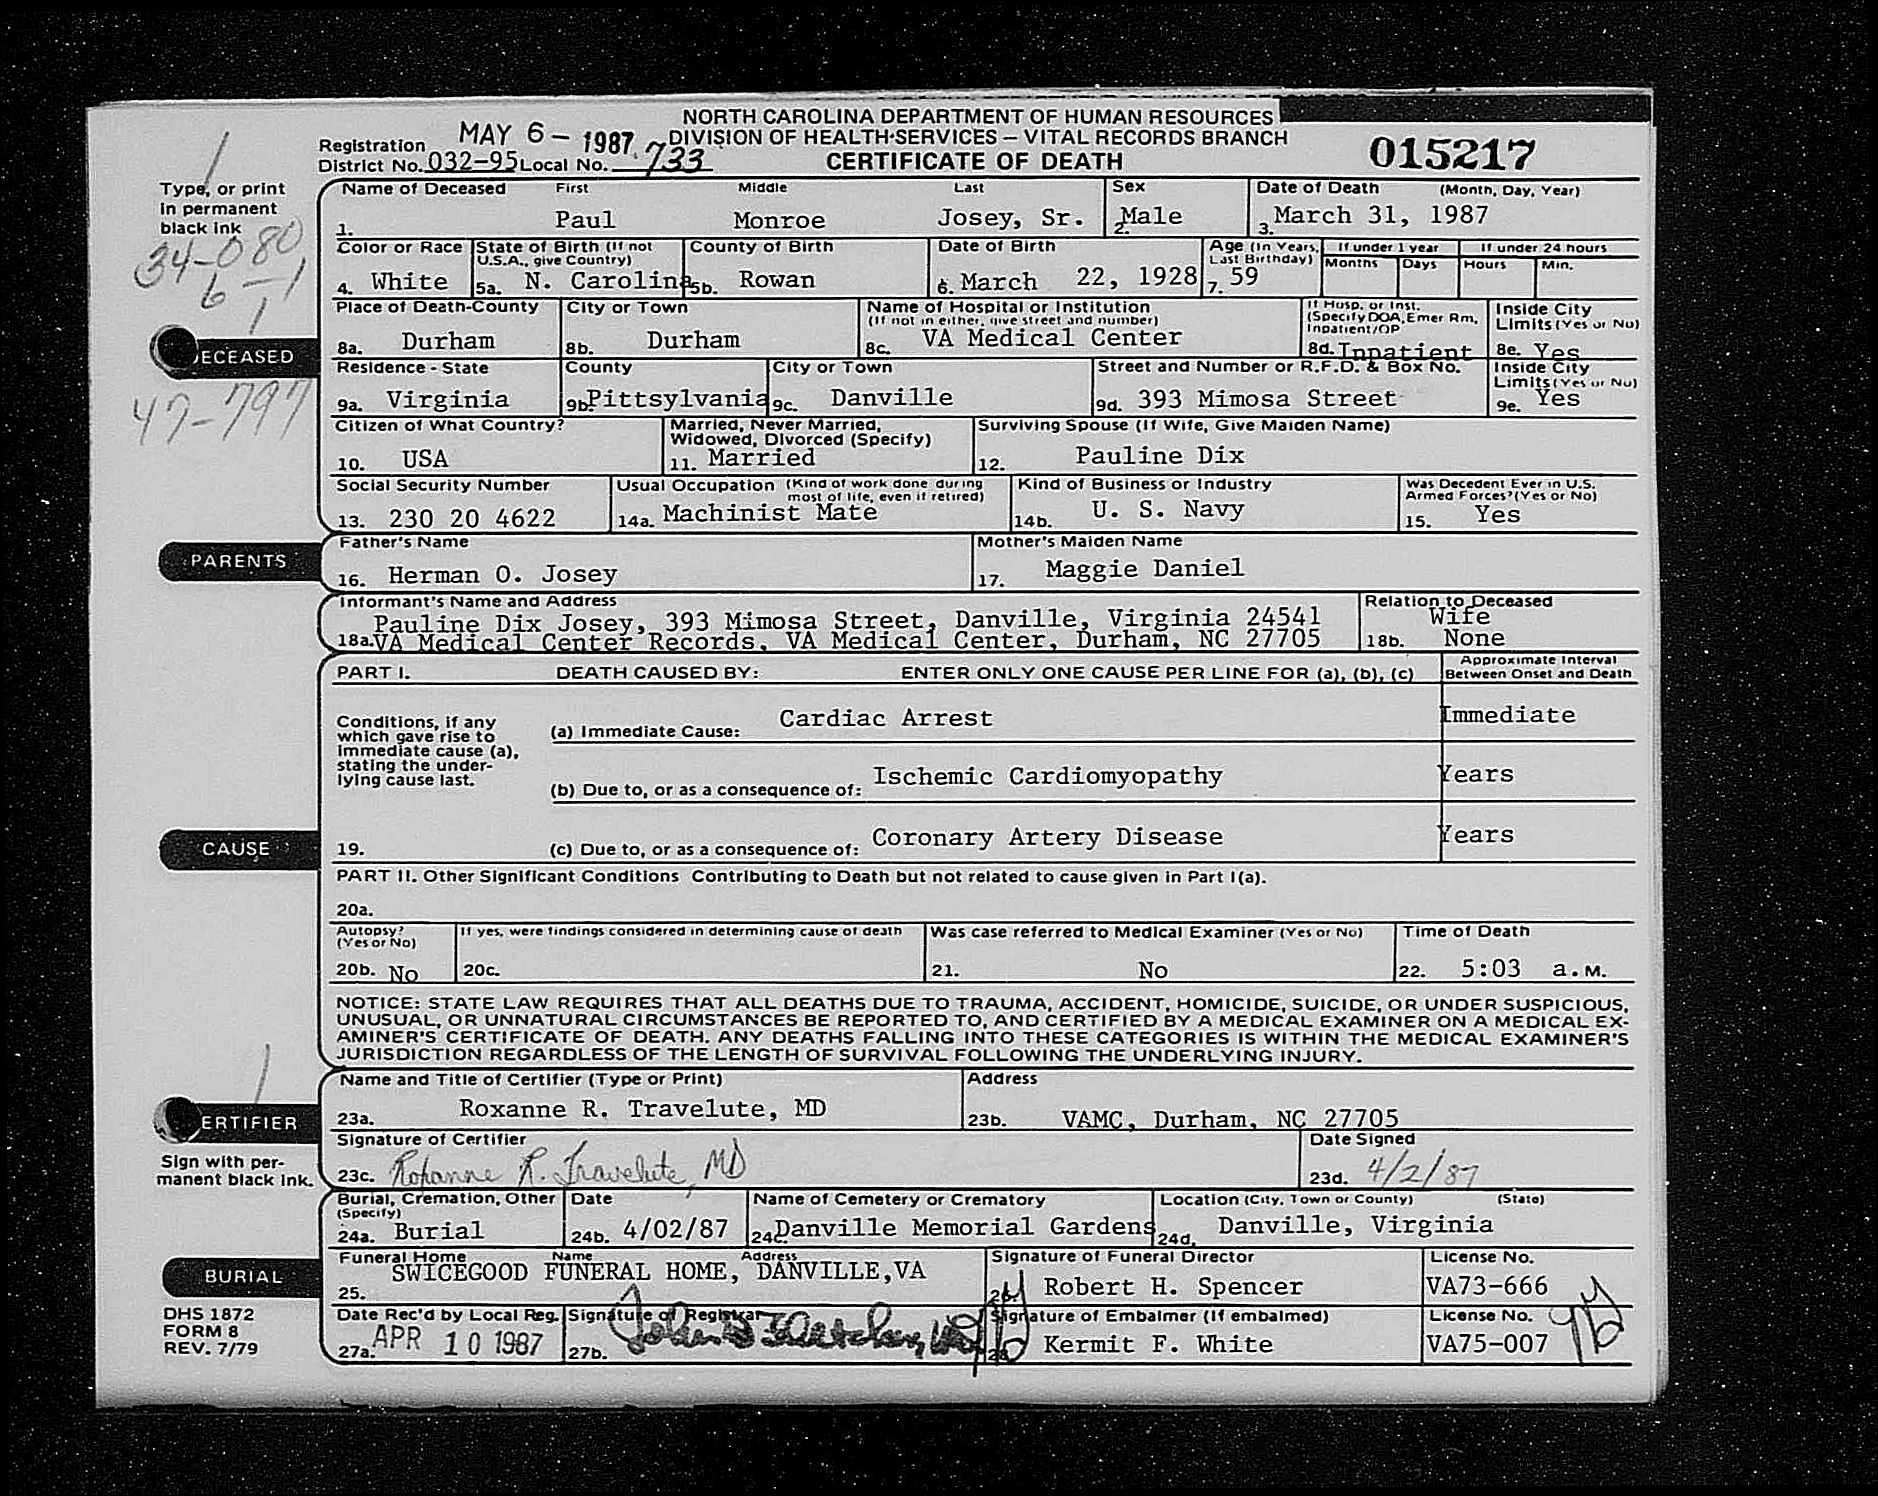 NORTH CAROLINA DEPARTMENT OF HUMAN RESOURCES
DIVISION OF HEALTH SERVICES – VITAL RECORDS BRANCH
CERTIFICATE OF DEATH
015217
MAY 6 – 1987
Registration
District No. 032-95 Local No. 733
Type, or print
in permanent
black ink
34-080
6 -1
1
47-797
DECEASED
Name of Deceased First Middle Last
1. Paul Monroe Josey, Sr.
Sex
2. Male
Date of Death (Month, Day, Year)
3. March 31, 1987
Color or Race
4. White
State of Birth (If not
U.S.A., give Country)
5a. N. Carolina
County of Birth
5b. Rowan
Date of Birth
6. March 22, 1928
Age (In Years,
Last Birthday)
7. 59
If under 1 year
Months Days
If under 24 hours
Hours Min.
Place of Death-County
8a. Durham
City or Town
8b. Durham
Name of Hospital or Institution
(If not in either, give street and number)
8c. VA Medical Center
If Hosp. or Inst.
(Specify DOA, Emer Rm,
Inpatient/OP
8d. Inpatient
Inside City
Limits (Yes or No)
8e. Yes
Residence - State
9a. Virginia
County
9b. Pittsylvania
City or Town
9c. Danville
Street and Number or R.F.D. & Box No.
9d. 393 Mimosa Street
Inside City
Limits (Yes or No)
9e. Yes
Citizen of What Country?
10. USA
Married, Never Married,
Widowed, Divorced (Specify)
11. Married
Surviving Spouse (If Wife, Give Maiden Name)
12. Pauline Dix
Social Security Number
13. 230 20 4622
Usual Occupation (Kind of work done during
most of life, even if retired)
14a. Machinist Mate
Kind of Business or Industry
14b. U. S. Navy
Was Decedent Ever in U.S.
Armed Forces? (Yes or No)
15. Yes
PARENTS
Father's Name
16. Herman O. Josey
Mother's Maiden Name
17. Maggie Daniel
Informant's Name and Address
Pauline Dix Josey, 393 Mimosa Street, Danville, Virginia 24541
18a. VA Medical Center Records, VA Medical Center, Durham, NC 27705
Relation to Deceased
Wife
18b. None
PART I. DEATH CAUSED BY: ENTER ONLY ONE CAUSE PER LINE FOR (a), (b), (c)
Approximate Interval
Between Onset and Death
Conditions, if any
which gave rise to
immediate cause (a),
stating the under-
lying cause last.
(a) Immediate Cause: Cardiac Arrest Immediate
(b) Due to, or as a consequence of: Ischemic Cardiomyopathy Years
CAUSE
19. (c) Due to, or as a consequence of: Coronary Artery Disease Years
PART II. Other Significant Conditions Contributing to Death but not related to cause given in Part I(a).
20a.
Autopsy?
(Yes or No)
20b. No
If yes, were findings considered in determining cause of death
20c.
Was case referred to Medical Examiner (Yes or No)
21. No
Time of Death
22. 5:03 a.M.
NOTICE: STATE LAW REQUIRES THAT ALL DEATHS DUE TO TRAUMA, ACCIDENT, HOMICIDE, SUICIDE, OR UNDER SUSPICIOUS,
UNUSUAL, OR UNNATURAL CIRCUMSTANCES BE REPORTED TO, AND CERTIFIED BY A MEDICAL EXAMINER ON A MEDICAL EX-
AMINER'S CERTIFICATE OF DEATH. ANY DEATHS FALLING INTO THESE CATEGORIES IS WITHIN THE MEDICAL EXAMINER'S
JURISDICTION REGARDLESS OF THE LENGTH OF SURVIVAL FOLLOWING THE UNDERLYING INJURY.
CERTIFIER
Sign with per-
manent black ink.
Name and Title of Certifier (Type or Print)
23a. Roxanne R. Travelute, MD
Address
23b. VAMC, Durham, NC 27705
Signature of Certifier
23c. Roxanne R. Travelute, MD
Date Signed
23d. 4/2/87
Burial, Cremation, Other
(Specify)
24a. Burial
Date
24b. 4/02/87
Name of Cemetery or Crematory
24c. Danville Memorial Gardens
Location (City, Town or County) (State)
24d. Danville, Virginia
BURIAL
Funeral Home Name Address
25. SWICEGOOD FUNERAL HOME, DANVILLE,VA
Signature of Funeral Director
26. Robert H. Spencer
License No.
VA73-666
Date Rec'd by Local Reg.
27a. APR 10 1987
Signature of Registrar
27b. John D Fletcher
Signature of Embalmer (If embalmed)
28. Kermit F. White
License No.
VA75-007
DHS 1872
FORM 8
REV. 7/79